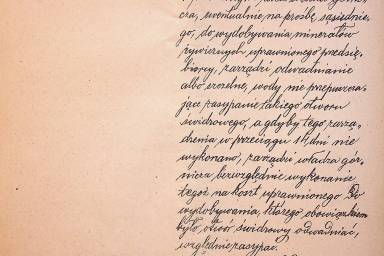 cza, ewentualnie na prośbę sąsiednie-
go, do wydobywania minerałów
żywicznych uprawnionego przedsię-
biorcy, zarządzi odwadnianie
albo szczelne, wody nie przepuszcza-
jące zasypanie takiego otworu
świdrowego, a gdyby tego zarzą-
dzenia w przeciągu 14 dni nie
wykonano, zarządzi władza gór-
nicza bezwzględnie wykonanie
tegoż na koszt uprawnionego Do
wydobywania, którego obowiązkiem
było, otwór świdrowy odwadniać,
względnie zasypać.